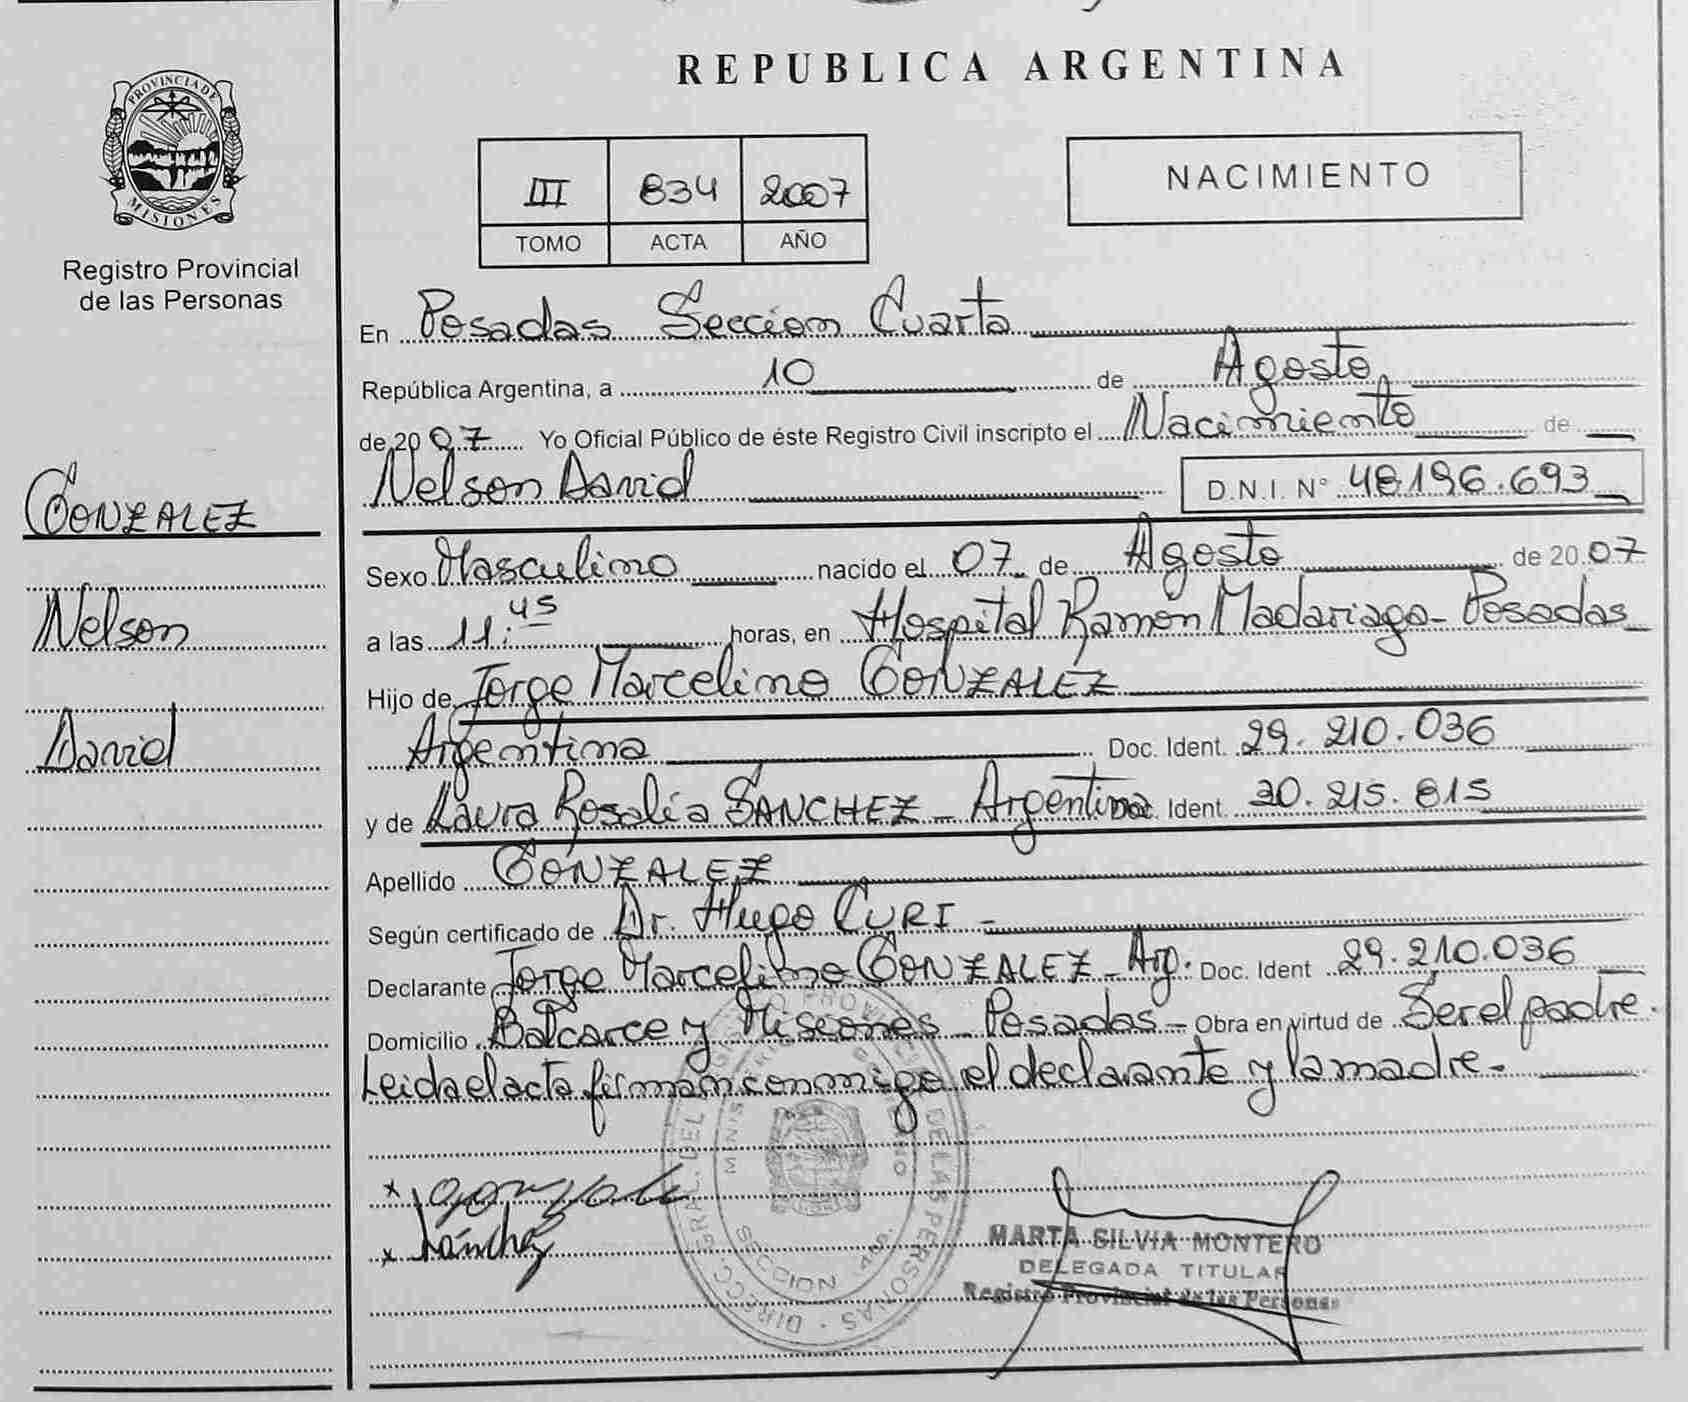 REPUBLICA ARGENTINA
PROVINCIA DE
MISIONES
Registro Provincial
de las Personas
III 834 2007
TOMO ACTA AÑO
NACIMIENTO
En Posadas Sección Cuarta
República Argentina, a 10 de Agosto
de 2007 Yo Oficial Público de éste Registro Civil inscripto el Nacimiento de
Nelson David D.N.I. N° 48196.693
GONZALEZ
Nelson
David
Sexo Masculino nacido el 07 de Agosto de 2007
a las 11:45 horas, en Hospital Ramón Madariaga - Posadas
Hijo de Jorge Marcelino GONZALEZ
Argentina Doc. Ident. 29.210.036
y de Laura Rosalía SANCHEZ - Argentina Doc. Ident. 30.215.815
Apellido GONZALEZ
Según certificado de Dr. Hugo CURI -
Declarante Jorge Marcelino GONZALEZ - Arg. Doc. Ident 29.210.036
Domicilio Balcarce y Misiones - Posadas - Obra en virtud de Ser el padre.
Leida el acta firman conmigo el declarante y la madre.-
x Gonzalez
x Sánchez
MARTA SILVIA MONTERO
DELEGADA TITULAR
Registro Provincial de las Personas
DIRECC. GRAL. DEL REGISTRO PROVINCIAL DE LAS PERSONAS
SECCION 4ta.